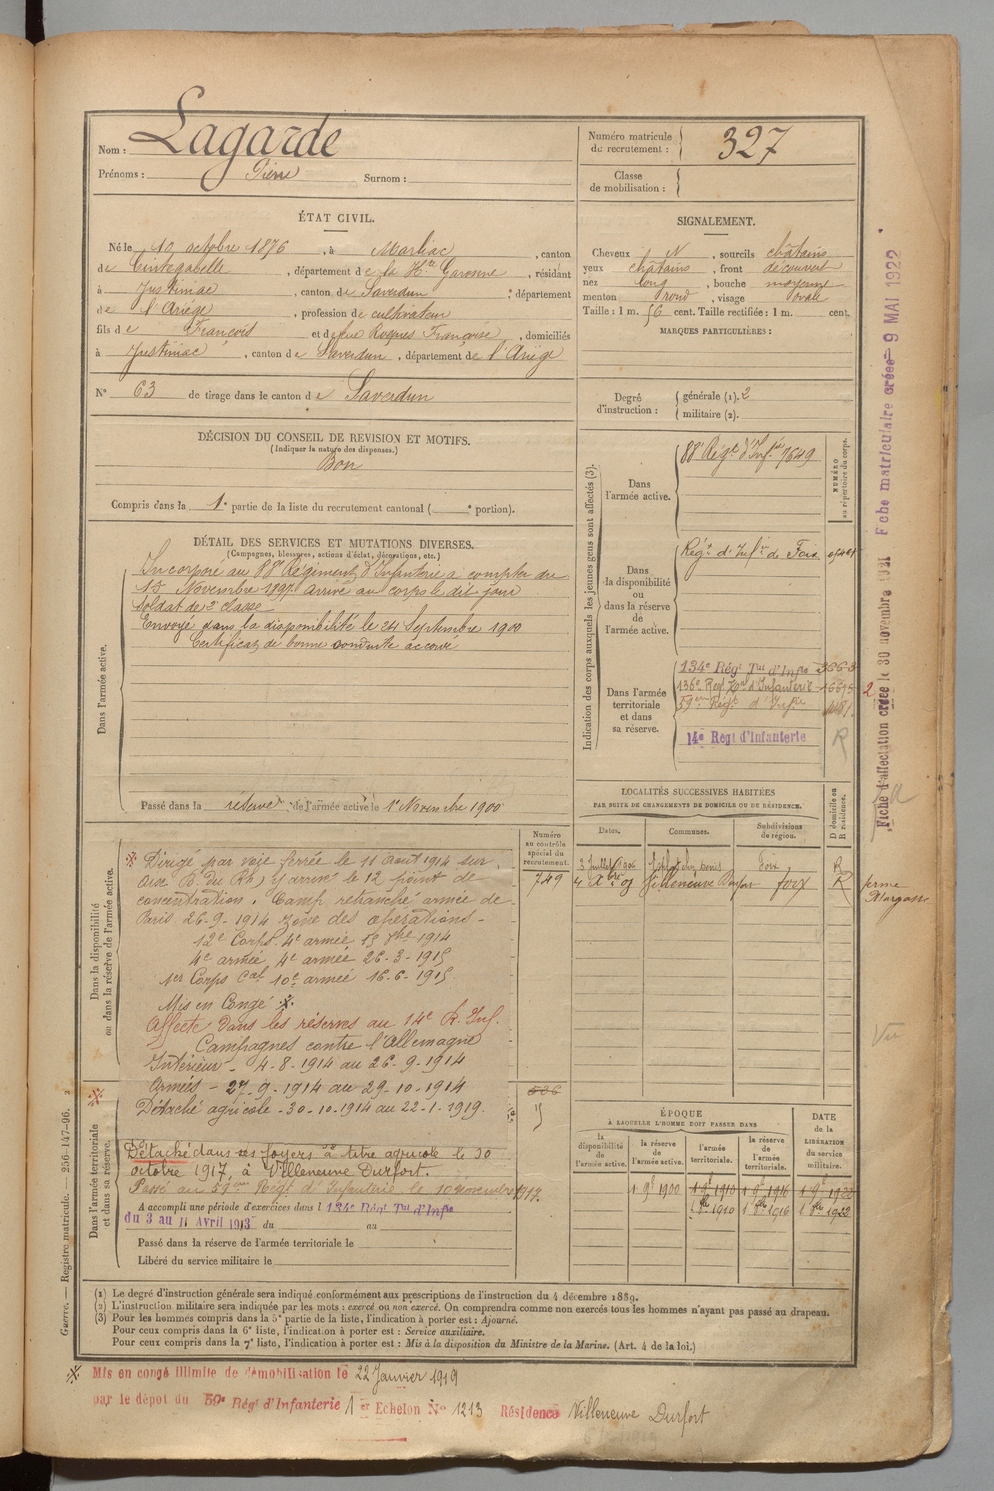 Nom : Lagarde
Prénoms : Pierre Surnom :
Numéro matricule de recrutement : 327
Classe de mobilisation :
ÉTAT CIVIL.
Né le 10 octobre 1876, à Marliac, canton
de Cintegabelle, département de la Hte Garonne, résidant
à Justiniac, canton de Saverdun, département
de l'Ariège, profession de cultivateur
fils de François et de feue Roques Françoise, domiciliés
à Justiniac, canton de Saverdun, département de l'Ariège
N° 63 de tirage dans le canton de Saverdun
SIGNALEMENT.
Cheveux N, sourcils châtains
yeux châtains, front découvert
nez long, bouche moyenne
menton rond, visage ovale
Taille : 1 m. 56 cent. Taille rectifiée : 1 m. cent.
MARQUES PARTICULIÈRES :
Degré d'instruction : générale (1). 2
militaire (2).
DÉCISION DU CONSEIL DE REVISION ET MOTIFS.
(Indiquer la nature des dispenses.)
Bon
Compris dans la 1e partie de la liste du recrutement cantonal ( e portion).
DÉTAIL DES SERVICES ET MUTATIONS DIVERSES.
(Campagnes, blessures, actions d'éclat, décorations, etc.)
Dans l'armée active.
Incorporé au 88e Régiment d'Infanterie à compter du
15 Novembre 1897 arrivé au corps le dit jour
soldat de 2e classe
Envoyé dans la disponibilité le 24 Septembre 1900
Certificat de bonne conduite accordé
Passé dans la réserve de l'armée active le 1er Novembre 1900
Indication des corps auxquels les jeunes gens sont affectés (3).
NUMÉRO au répertoire du corps.
Dans l'armée active.
88e Régt d'Infie 7649
Dans la disponibilité ou dans la réserve de l'armée active.
Régt d'Infie de Foix
Dans l'armée territoriale et dans sa réserve.
134e Régt Tal d'Infie
136e Regt Tal d'Infanterie
59e Régt d'Infie
14e Regt d'Infanterie R
LOCALITÉS SUCCESSIVES HABITÉES
PAR SUITE DE CHANGEMENTS DE DOMICILE OU DE RÉSIDENCE.
Dates. Communes. Subdivisions de région. D domicile ou R résidence.
3 Juillet 1906 Foix R
Villeneuve Durfort foix R
ferme
Numéro au contrôle spécial du recrutement.
749
Dans la disponibilité ou dans la réserve de l'armée active.
Dirigé par voie ferrée le 11 aout 1914 sur
arrivé le 12 point de
concentration. Camp retranché armée de
Paris 26-9-1914 zone des opérations -
12e Corps 4e armée 15 8bre 1914
4e armée 4e armée 26-3-1915
1er Corps Cal 10e armée 16-6-1915
Mis en Congé
Affecté dans les réserves au 14e R. Inf.
Campagnes contre l'Allemagne
Intérieur - 4-8-1914 au 26-9-1914
Armées - 27-9-1914 au 29-10-1914
Détaché agricole - 30-10-1914 au 22-1-1919.
Dans l'armée territoriale et dans sa réserve.
Détaché dans ses foyers à titre agricole le 30
octobre 1917, à Villeneuve Durfort.
Passé au 59eme Régt d'Infanterie le 10 novembre 1917.
A accompli une période d'exercices dans l 134e Régt Tal d'Infie
du 3 au 11 Avril 1913 du au
Passé dans la réserve de l'armée territoriale le
Libéré du service militaire le
ÉPOQUE À LAQUELLE L'HOMME DOIT PASSER DANS
la disponibilité de l'armée active. la réserve de l'armée active. l'armée territoriale. la réserve de l'armée territoriale.
DATE de la LIBÉRATION du service militaire.
1 9e 1900 1 9e 1910 1 9e 1916 1 9e 1922
1 8bre 1910 1 8bre 1916 1 8bre 1922
(1) Le degré d'instruction générale sera indiqué conformément aux prescriptions de l'instruction du 4 décembre 1889.
(2) L'instruction militaire sera indiquée par les mots : exercé ou non exercé. On comprendra comme non exercés tous les hommes n'ayant pas passé au drapeau.
(3) Pour les hommes compris dans la 5e partie de la liste, l'indication à porter est : Ajourné.
Pour ceux compris dans la 6e liste, l'indication à porter est : Service auxiliaire.
Pour ceux compris dans la 7e liste, l'indication à porter est : Mis à la disposition du Ministre de la Marine. (Art. 4 de la loi.)
Mis en congé illimité de démobilisation le 22 Janvier 1919
par le dépot du 59e Régt d'Infanterie 1er Echelon N° 1213 Résidence Villeneuve Durfort
Guerre. — Registre matricule. — 256-147-96.
Fiche d'affectation créée le 30 novembre 1921 Fiche matriculaire créée 9 MAI 1922
Vu